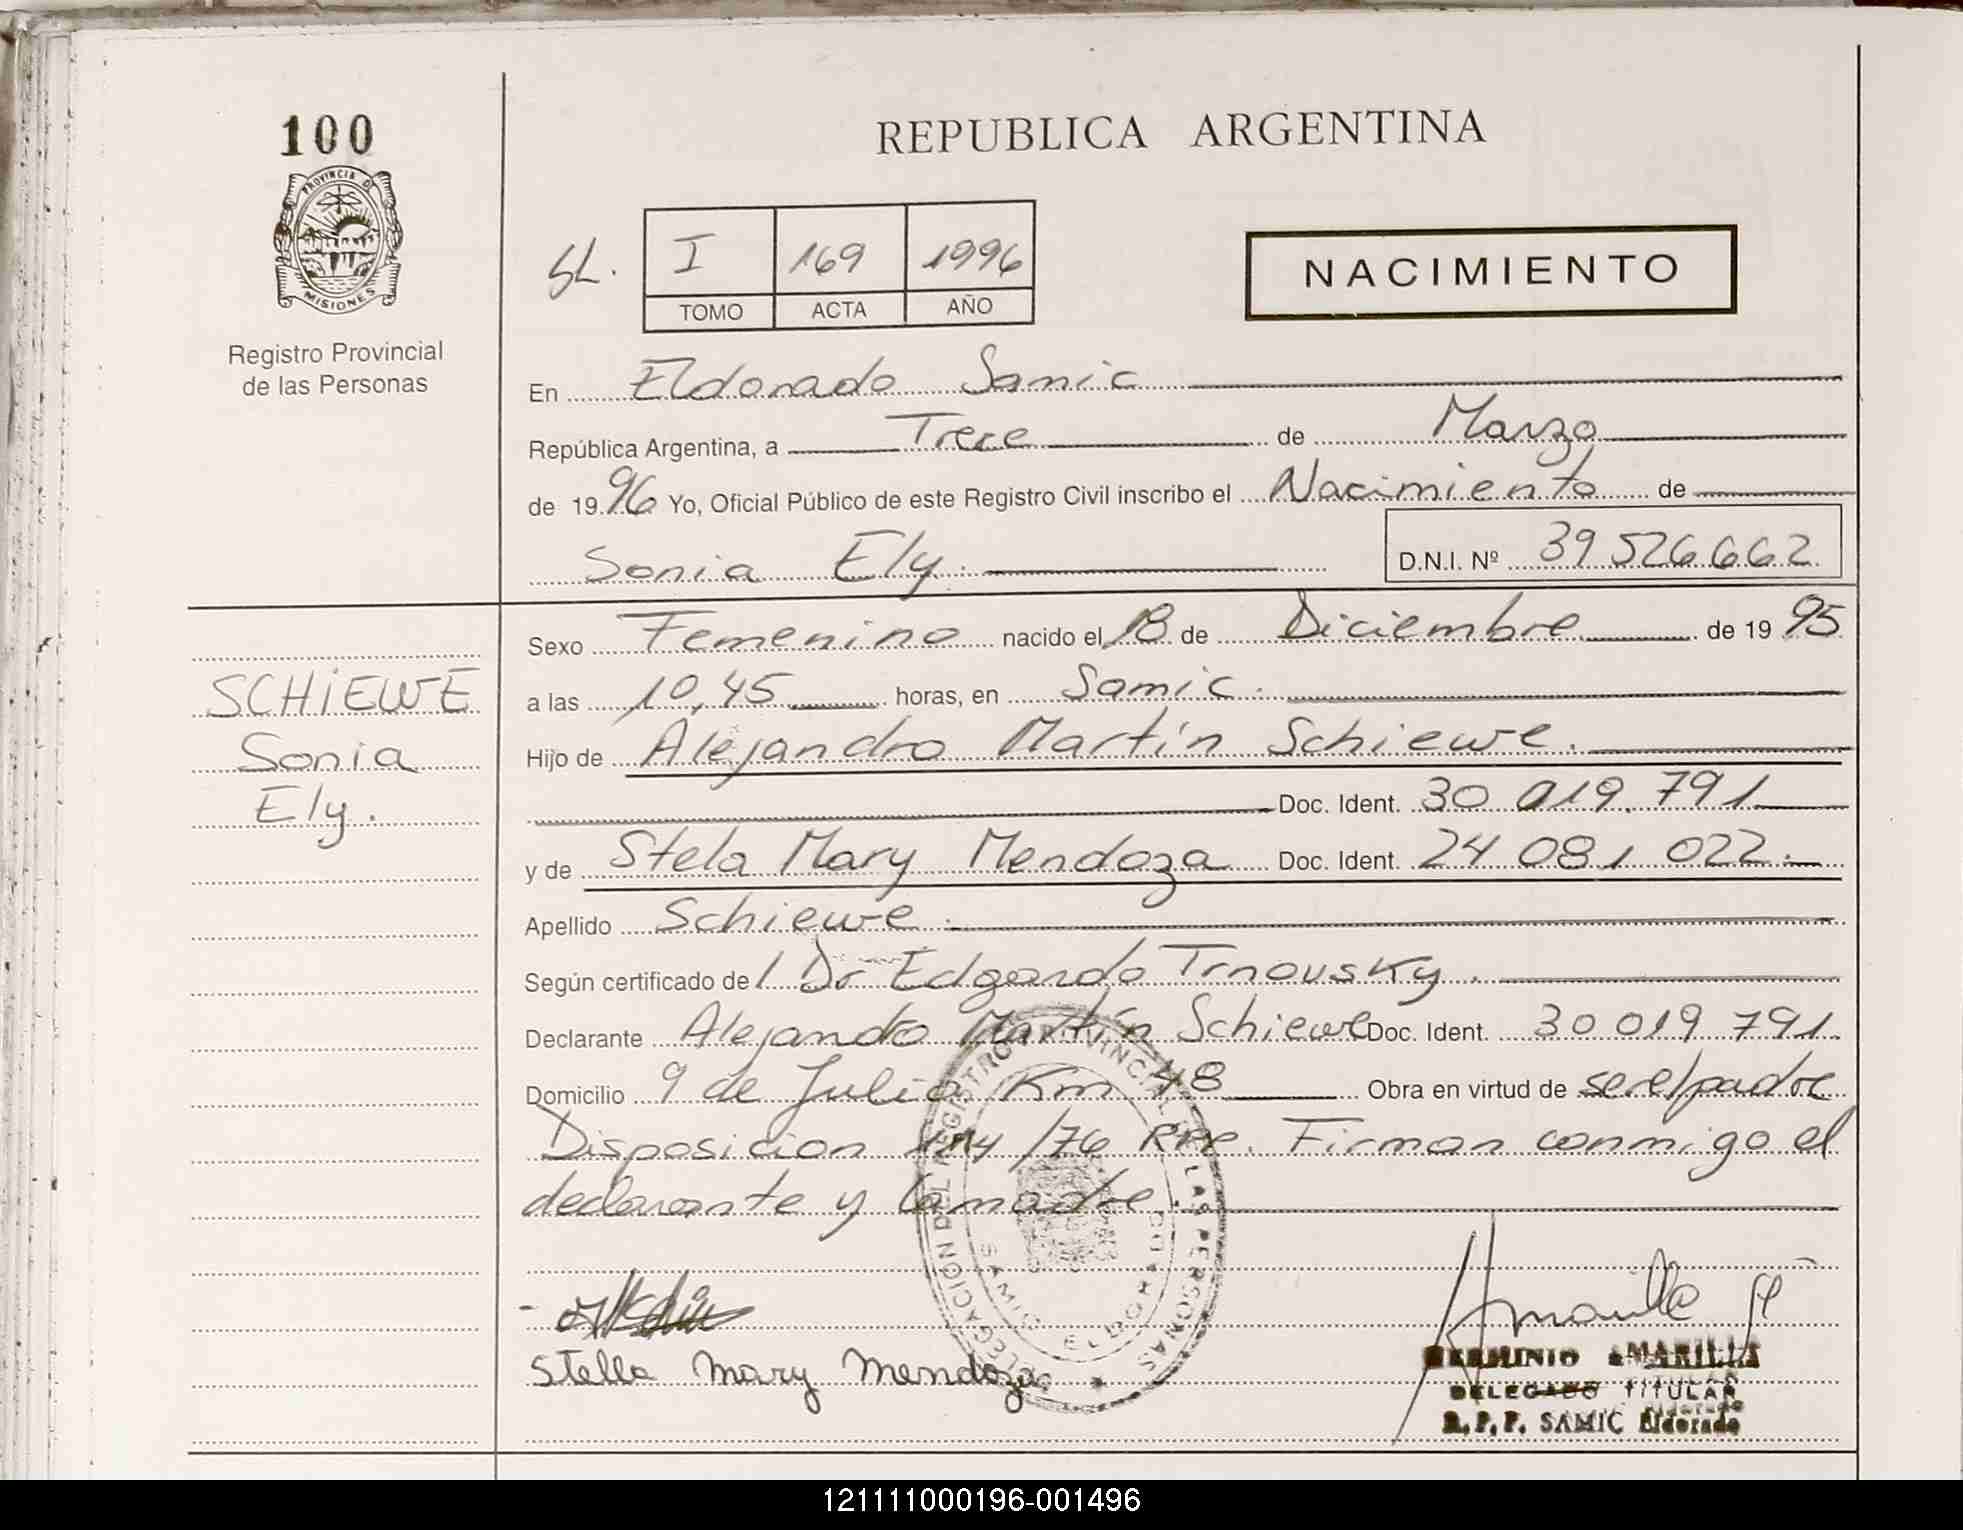 100
REPUBLICA ARGENTINA
PROVINCIA D
MISIONES
Registro Provincial
de las Personas
SL. I 169 1996
TOMO ACTA AÑO
NACIMIENTO
En Eldorado Samic
República Argentina, a Trece de Marzo
de 1996 Yo, Oficial Público de este Registro Civil inscribo el Nacimiento de
Sonia Ely. D.N.I. Nº 39526662
Sexo Femenino nacido el 18 de Diciembre de 1995
SCHIEWE
Sonia
Ely.
a las 10,45 horas, en Samic.
Hijo de Alejandro Martín Schiewe.
Doc. Ident. 30 019 791
y de Stela Mary Mendoza Doc. Ident. 24 081 022.
Apellido Schiewe.
Según certificado del Dr Edgardo Trnovsky.
Declarante Alejandro Martín Schiewe Doc. Ident. 30 019 791.
Domicilio 9 de Julio Km 48 Obra en virtud de ser el padre
Disposicion /76 RPP. Firman conmigo el
declarante y la madre.
DELEGACION DEL REGISTRO PROVINCIAL DE LAS PERSONAS
SAMIC ELDORADO
Stella Mary Mendoza
Amarilla
HERMINIO AMARILLA
DELEGADO TITULAR
R.P.P. SAMIC Eldorado
121111000196-001496